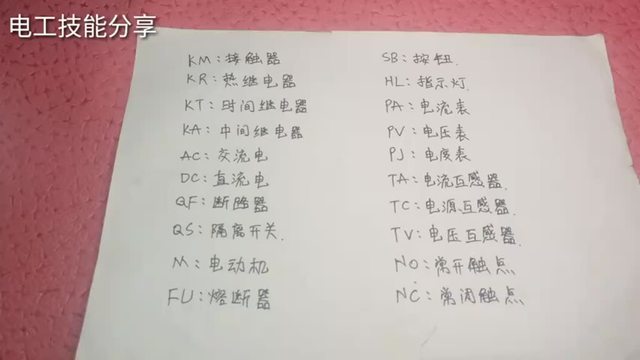 电工技能分享
KM：接触器
KR：热继电器
KT：时间继电器
KA：中间继电器
AC：交流电
DC：直流电
QF：断路器
QS：隔离开关.
M：电动机
FU：熔断器
SB：按钮.
HL：指示灯.
PA：电流表
PV：电压表
PJ：电度表
TA：电流互感器.
TC：电源互感器.
TV：电压互感器.
NO：常开触点
NC：常闭触点